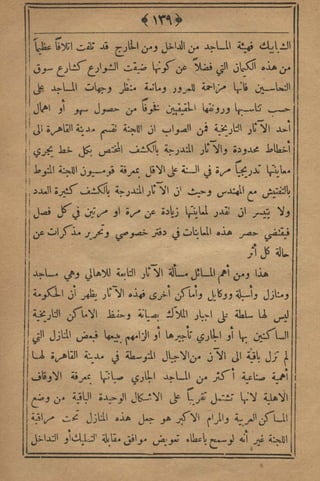 ﴿١٣٩﴾
الشبابيك فهيئة المساجد من الداخل ومن الخارج قد تلفت اتلافاً عظيماً
من هذه الكيمان التي فضلاً عن كونها ضيقت الشوارع كشارع سوق
النحاسين فانها مزاحمة للمرور ومانعة منظر وجهات المساجد على
حسب تناسبها ورونقها الحقيقيين فخوفاً من حصول سهو أو اهمال
أحد الآثار التاريخية فمن الصواب ان اللجنة تقسم مدينة القاهرة الى
أخطاط محدودة والآثار المندرجة بالكشف المختص بكل خط يجري
معاينتها تدريجياً مرة في السنة على الاقل بمعرفة قومسيون اللجنة المنوط
بالتفتيش مع المهندس وحيث ان الآثار المندرجة بالكشف كثيرة العدد
ولا يتيسر ان تقدر لمعاينتها زيادة عن مرة او مرتين في كل فصل
فيقتضي حصر هذه المعاينات في دفتر خصوصي وتحرير مذكرات عن
حالة كل أثر
هذا ومن أهم المسائل مسألة الآثار التابعة للاهالي وهي مساجد
ومنازل وأسبلة ووكايل وأماكن أخرى فهذه الآثار يظهر أن الحكومة
ليس لها سلطة على اجبار الملاك بصيانة وحفظ الاماكن التاريخية
الساكنين بها أو الجاري تأجيرها أو الزامهم ببيعها فبعض المنازل التي
لم تزل باقية الى الآن من الاجيال المتوسطة في مدينة القاهرة لها
أهمية صناعية أكثر من المساجد الجاري صيانتها بمعرفة الاوقاف
الاهلية لانها تشتمل تقريباً على الاشكال الوحيدة الباقية من وضع
المساكن العربية والمرام الاكبر هو جعل هذه المنازل تحت مراقبة
اللجنة غير أنه لو سمح باعطاء تعويض موافق مقابلة التمليك أو التداخل